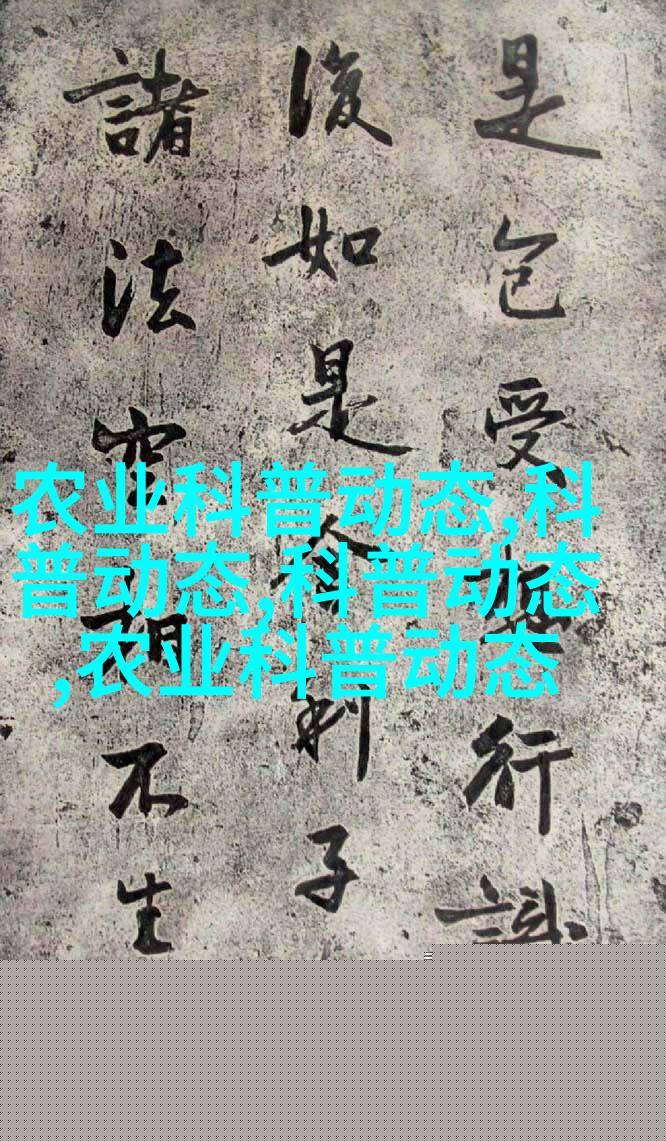 是色受行識
復如是舍利子
諸法空相不生
农业科普动态,科
普动态,科普动态
,农业科普动态